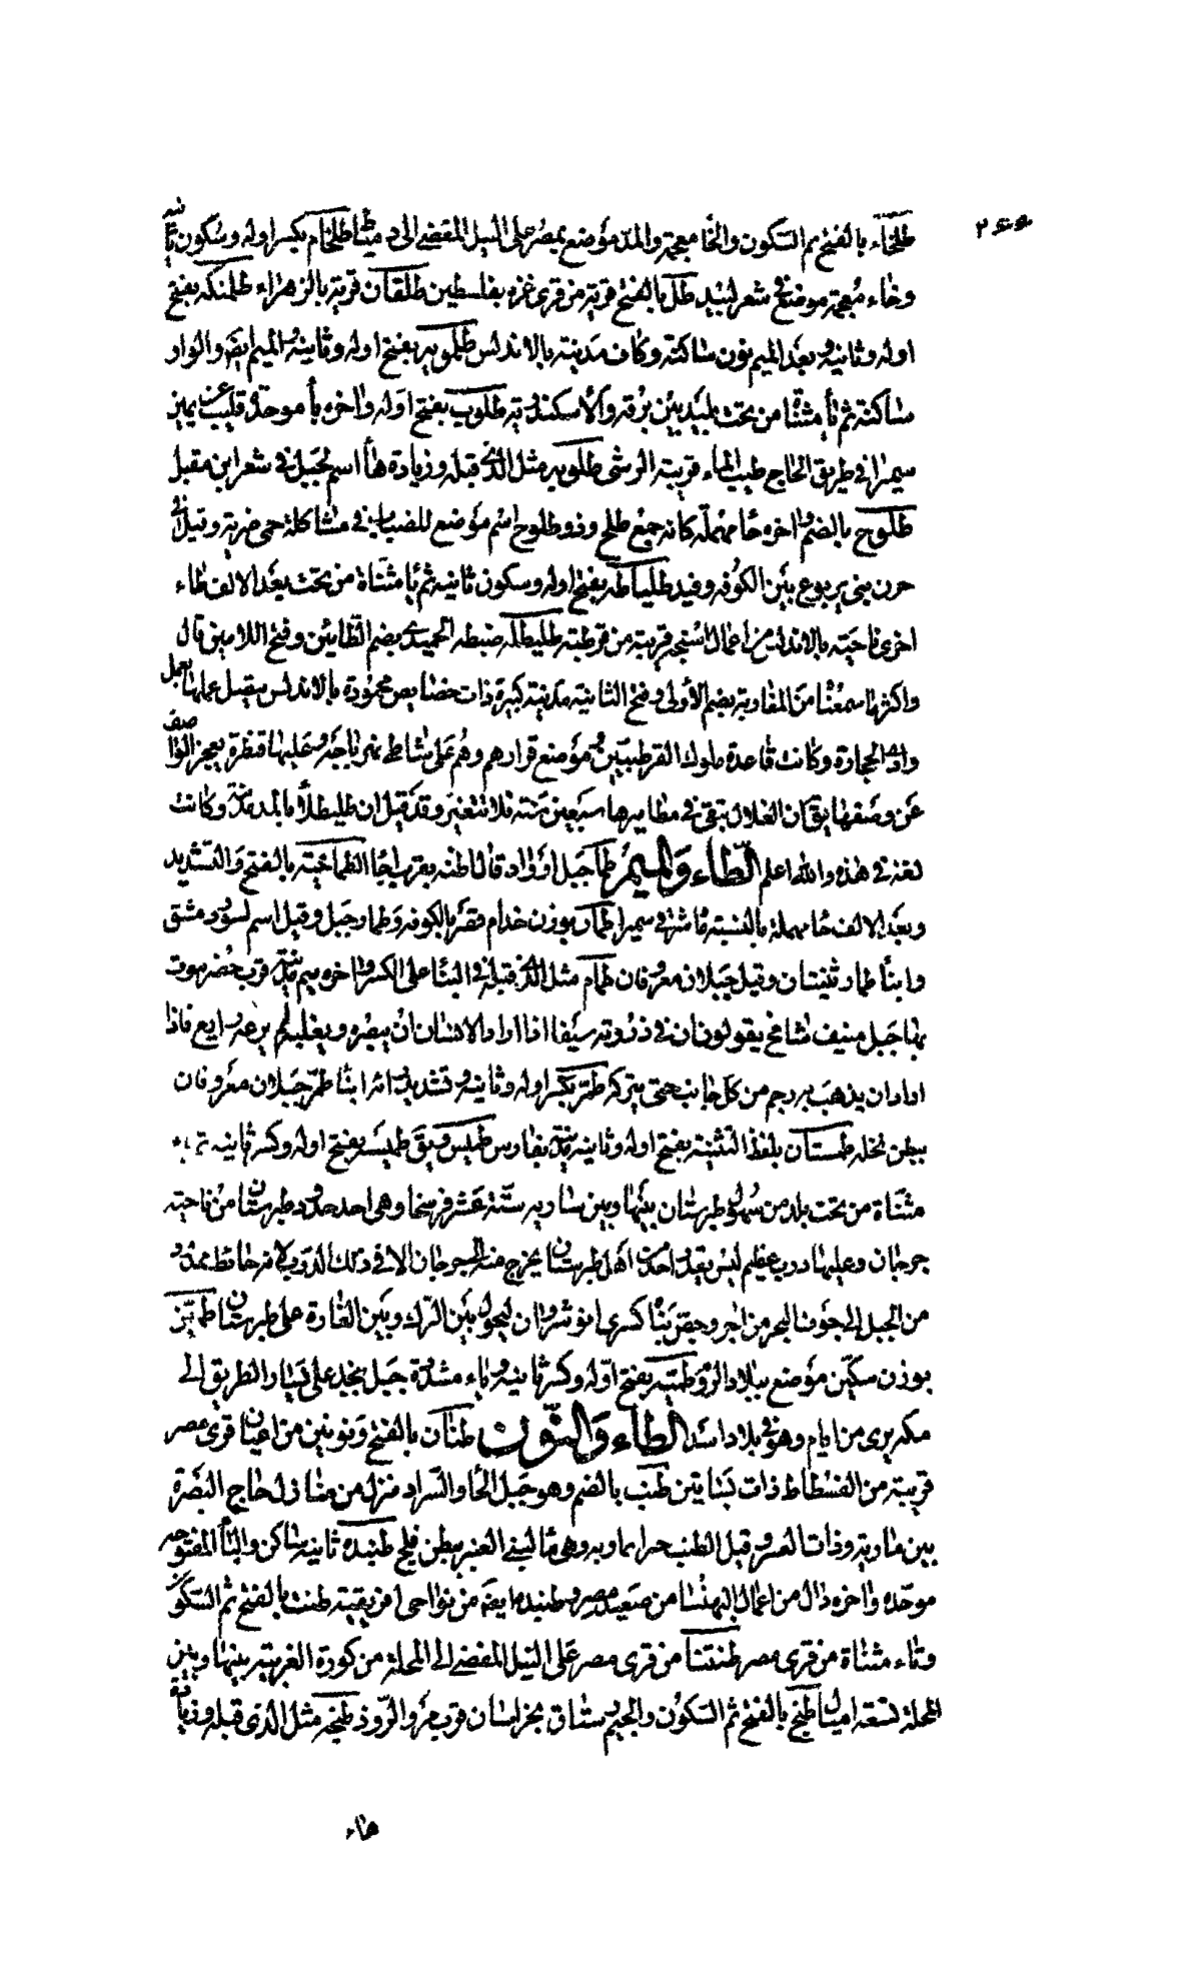 طلخاء بالفتح ثم السكون والخا معجمة والمد موضع بمصر على النيل المفضي الى دمياط طلخام بكسر اوله وسكون ثانيه
وخاء معجمة موضع في شعر لبيد طل بالفتح قرية من قرى غزه بفلسطين طلقان قرية بالزهراء طلمنكه بفتح
اوله وثانيه وبعد الميم نون ساكنة وكاف مدينة بالاندلس طلمويه بفتح اوله وثانيه والميم ايضا والواو
ساكنة ثم يا مثناة من تحت بليد بين برقه والاسكندرية طلوب بفتح اوله واخره با موحدة قليب عن يمين
سميرا في طريق الحاج طيب الماء قريب الرشى طلوبه مثل الذي قبله وزيادة ها اسم لجبل في شعر ابن مقبل
طلوح بالضم واخره حا مهملة كانه جمع طلح وذو طلوح اسم موضع للضباب في مشاكلة حمى ضرية وقيل في
حزن بني يربوع بين الكوفه وفيد طلياطه بفتح اوله وسكون ثانيه ثم يا مثناة من تحت بعد الالف طاء
اخرى ناحية بالاندلس من اعمال استجه قريبة من قرطبة طليطله ضبطه الحميدي بضم الطائين وفتح اللامين قال
واكثر ما سمعنا من المغاربة بضم الاولى وفتح الثانية مدينة كبيرة ذات خصايص محمودة بالاندلس يتصل عملها بعمل
وادي الحجارة وكانت قاعدة ملوك القرطبيين وموضع قرارهم وهم على شاطى نهر تاجه وعليها قنطرة يعجز الواصف
عن وصفها يق ان الغلال تبقى في مطاميرها سبعين سنة فلا تتغير وقد قيل ان طليطلا بالمد مدينة وكانت
لغة في هذه والله اعلم الطاء والميم طما جبل او واد قال اظنه بقرب اجا الطماحية بالفتح والتشديد
وبعد الالف حا مهملة بالنسبة ما شرقي سميرا طمار بوزن خدام قصر بالكوفه وطمار جبل وقيل اسم لسور دمشق
وابنا طمار ثنيتان وقيل جبلان معروفان طمام مثل الذي قبله في البنا على الكسر واخره ميم مدينة قرب حضرموت
بها جبل منيف شامخ يقولون ان في ذروته سيفا اذا اراد الانسان ان يبصره ويقلبه لم يرعه رايع فاذا
اراد ان يذهب به رجم من كل جانب حتى يتركه طمر بكسر اوله وثانيه وتشديد رائه ابنا طمر جبلان معروفان
ببطن نخله طمستان بلفظ التثنية بفتح اوله وثانيه مدينة بفارس طميس ويق طميسه بفتح اوله وكسر ثانيه ثم ياء
مثناة من تحت بلد من سهول طبرستان بينها وبين ساريه ستة عشر فرسخا وهي احد حدود طبرستان من ناحية
جرجان وعليها درب عظيم ليس يقدر احد من اهل طبرستان يخرج منه الى جرجان الا في ذلك الدرب لانه حائط ممدود
من الجبل الى جوف البحر من اجر وجص بناه كسرى انوشروان ليحول بين الترك وبين الغارة على طبرستان طمين
بوزن سكين موضع ببلاد الروم طميه بفتح اوله وكسر ثانيه وياء مشددة جبل بنجد على يسار الطريق الى
مكه يرى من ايام وهو في بلاد اسد الطاء والنون طنان بالفتح ونونين من اعيان قرى مصر
قريبة من الفسطاط ذات بساتين طنب بالضم وهو جبل الخا والسراد منزل من منازل حاج البصرة
بين ماوية وذات العسر وقيل الطنب حرا ماويه وهي ما لبني العنبر ببطن فلج طنبذه ثانيه ساكن والباء المفتوحه
موحده واخره ذال من اعمال البهنسا من صعيد مصر وطنبذه ايضا من نواحي افريقية طنت بالفتح ثم السكون
وتاء مثناة من قرى مصر طنتتنا من قرى مصر على النيل المفضي الى المحلة من كورة الغربية بينها وبين
المحلة تسعة اميال طنج بالفتح ثم السكون والجيم رستاق بخراسان قرب مرو الروذ طنجه مثل الذي قبله وزيادة
هاء